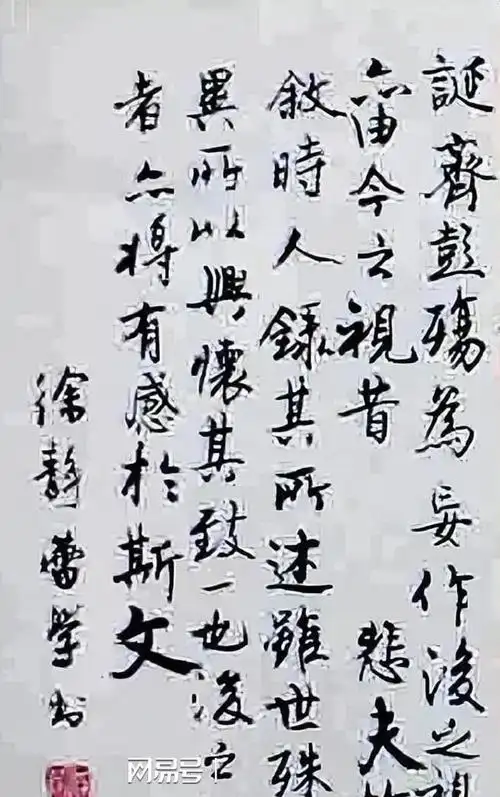 誕齊彭殤為妄作後之視
亦由今之視昔 悲夫
敘時人錄其所述雖世殊
異所以興懷其致一也後之
者亦將有感於斯文
徐靜蕾学书
网易号